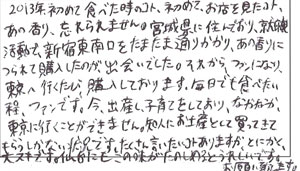 2013年初めて食べた時のコト、初めて、お店を見たコト、
あの香り、忘れられません。宮城県に住んでおり、就職
活動で、新宿東南口をたまたま通りかかり、あの香りに
つられて購入したのが出会いでした。それから、ファンになり、
東京へ行くたび、購入しております。毎日でも食べたい
程、ファンです。今、出産し、子育てをしており、なかなか、
東京に行くことができません。知人にお土産として買ってきて
もらうしかない状況です。たくさん言いたいコトありますが、とにかく、
大スキです。仙台にもこの味がたのしめるとうれしいです。
お願い致します。